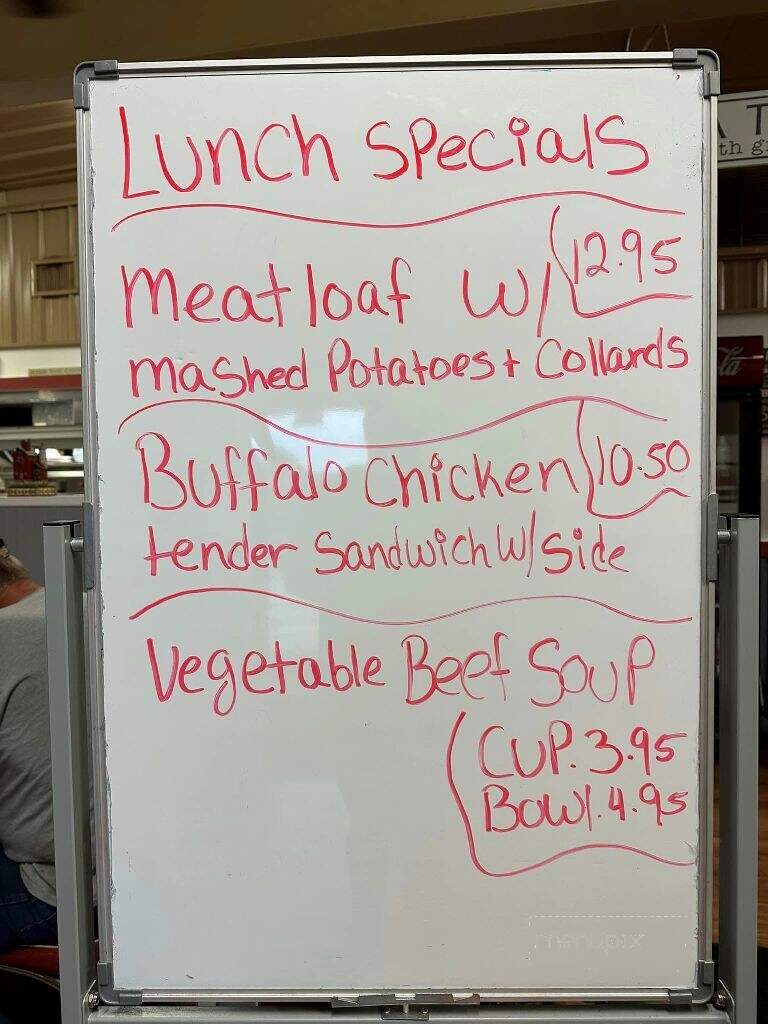 Lunch Specials
Meatloaf w/ 12.95
mashed Potatoes + Collards
Buffalo Chicken 10.50
tender Sandwich w/ side
Vegetable Beef Soup
Cup. 3.95
Bowl. 4.95
menupix